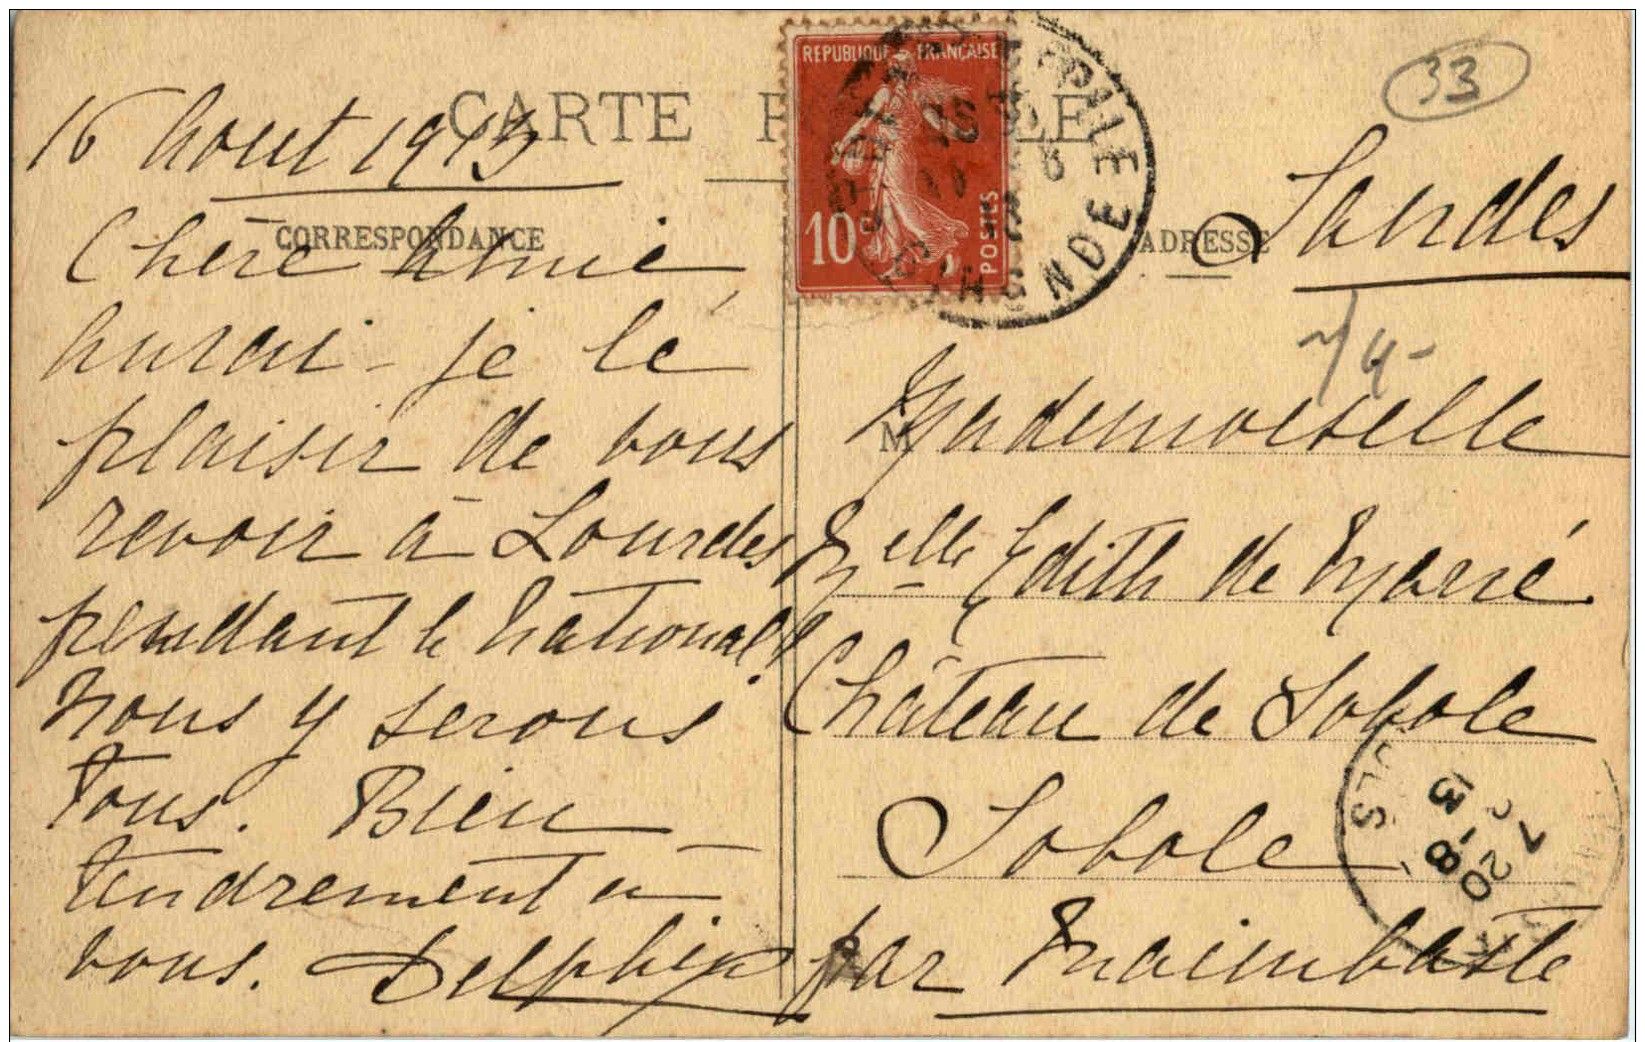 CARTE
16 Aout 1913
CORRESPONDANCE
Chère Amie
Aurai-je le
plaisir de vous
revoir à Lourdes
pendant le National?
Nous y serons
tous. Bien
tendrement à
vous. Delphine
REPUBLIQUE FRANÇAISE
10c
POSTES
33
Landes
ADRESSE
M
Mademoiselle
Melle Edith de Marié
Château de Sobole
Sobole
par Maimbaste
7 20
20-8
13